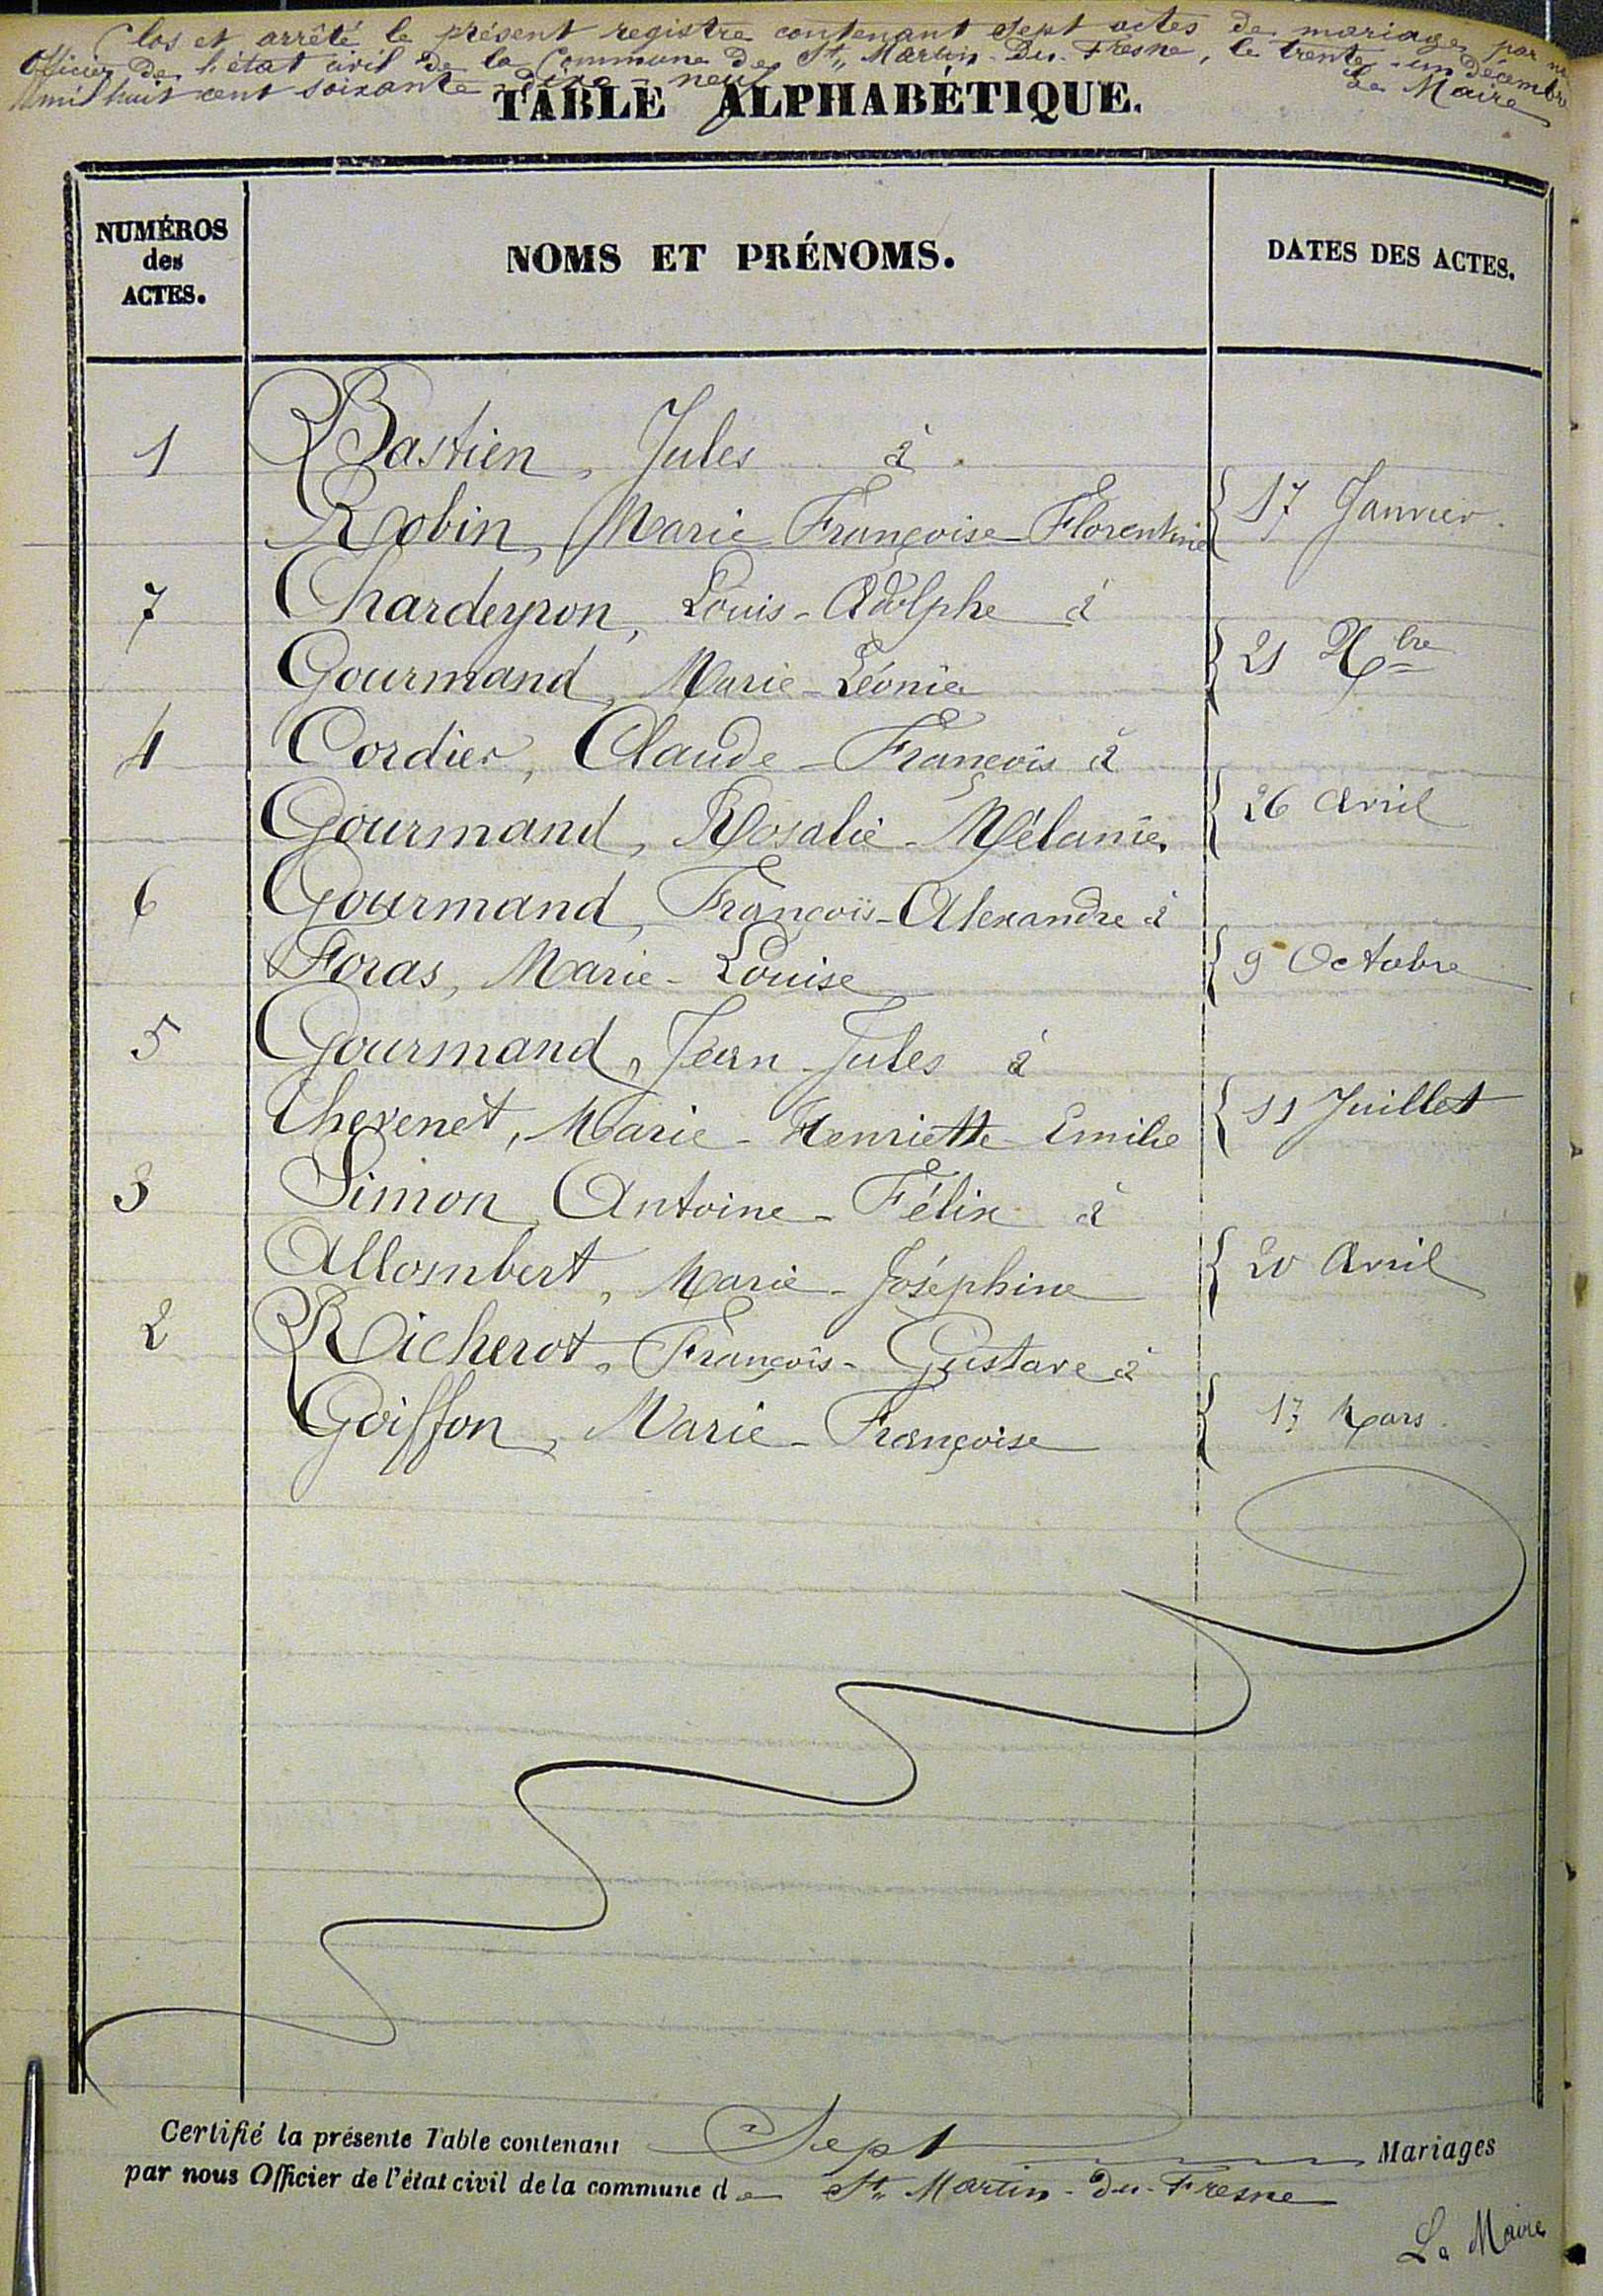 Clos et arrêté le présent registre contenant sept actes de mariage par
Officier de l'état civil de la Commune de St,, Martin-Du-Fresne, le trente-un décembre
mil huit cent soixante-dix-neuf
Le Maire
TABLE ALPHABÉTIQUE.
NUMÉROS
des
ACTES.
NOMS ET PRÉNOMS.
DATES DES ACTES.
1 Bastien, Jules à
Robin, Marie Françoise-Florentine { 17 Janvier
7 Chardeyron, Louis-Adolphe à
Gourmand, Marie-Léonie { 21 Xbre
4 Cordier, Claude-François à
Gourmand, Rosalie-Mélanie { 26 Avril
6 Gourmand, François-Alexandre à
Foras, Marie-Louise { 9 Octobre
5 Gourmand, Jean-Jules à
Chevenet, Marie-Henriette-Emilie { 11 Juillet
3 Simon, Antoine-Félix à
Allombert, Marie-Joséphine { 20 Avril
2 Richerot, François-Gustave à
Goiffon, Marie-Françoise { 17 Mars
Certifié la présente Table contenant Sept Mariages
par nous Officier de l'état civil de la commune de St,, Martin-Du-Fresne
Le Maire